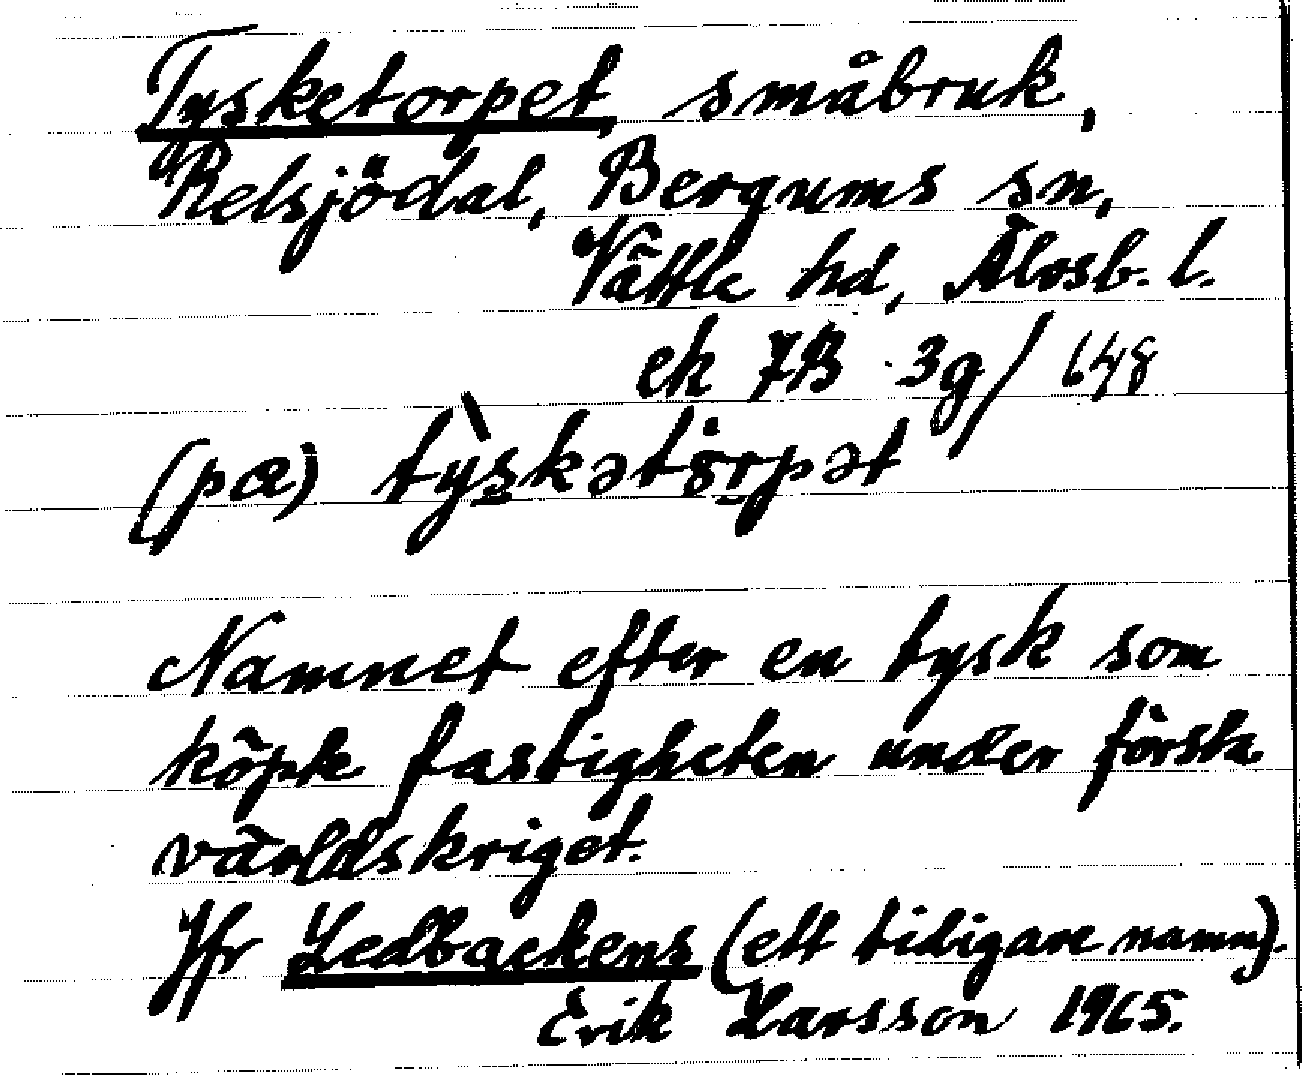 Tysketorpet, småbruk,
Relsjödal, Bergums sn,
Vättle hd, Älvsb. l.
ek 7B 3g/ 648
(pæ) tỳskətårpət
Namnet efter en tysk som
köpte fastigheten under första
världskriget.
Jfr Ledbackens (ett tidigare namn).
Erik Larsson 1965.